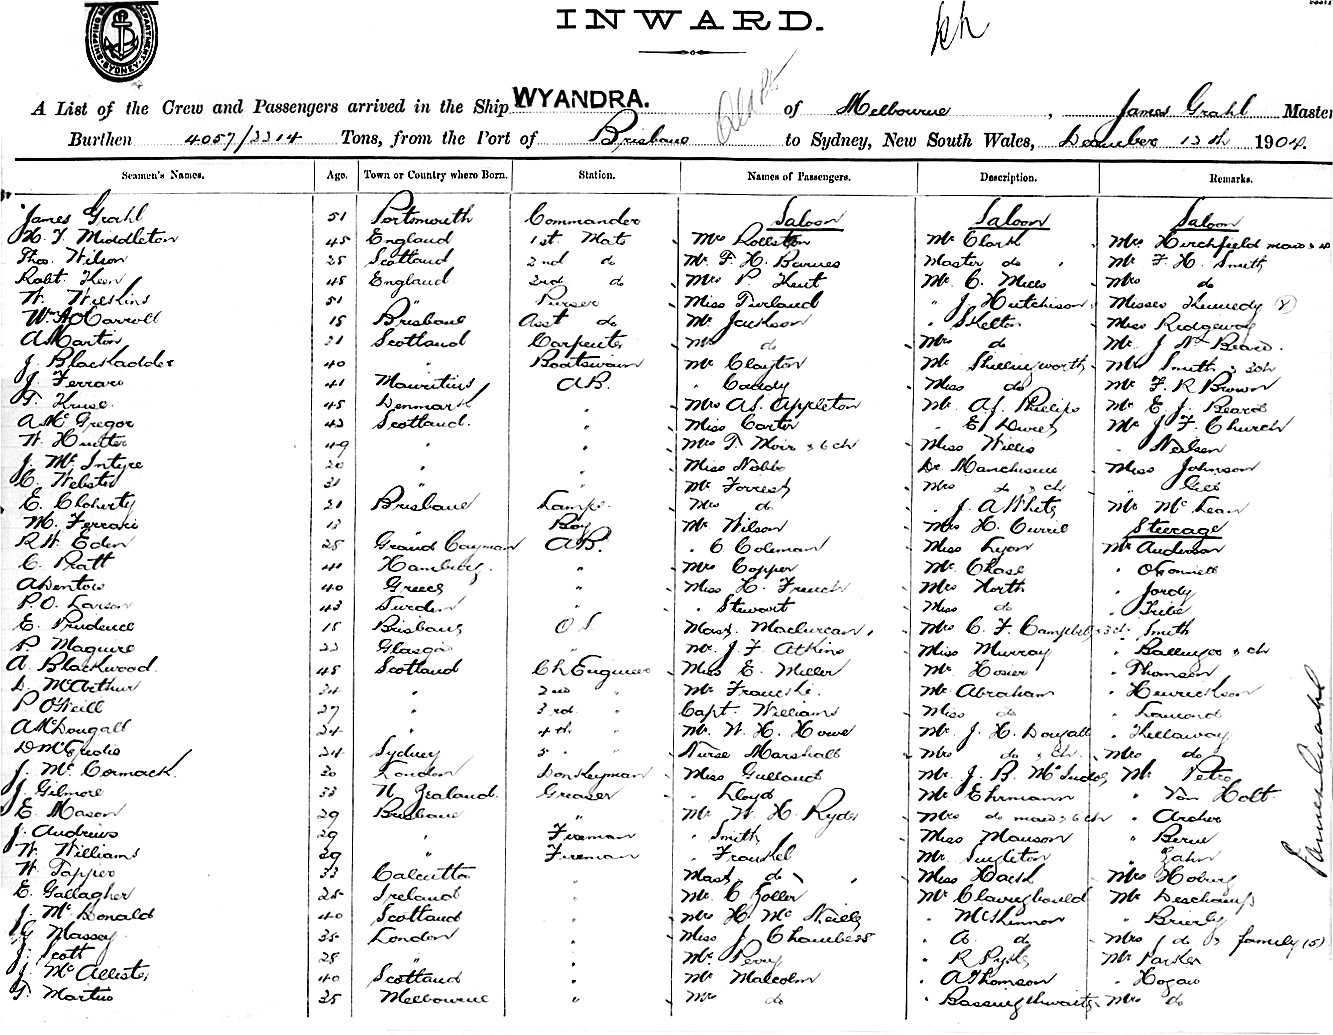 INWARD.
A List of the Crew and Passengers arrived in the Ship WYANDRA. of Melbourne, James Grahl Master
Burthen 4057/2314 Tons, from the Port of Brisbane to Sydney, New South Wales, December 13th 1904.
Seamen's Names. Age. Town or Country where Born. Station. Names of Passengers. Description. Remarks.
James Grahl 51 Portsmouth Commander Saloon Saloon Saloon
H. T. Middleton 45 England 1st. Mate Mrs Rolleston Mr Clark Mrs Hirchfield maid
Thos. Wilson 25 Scotland 2nd do Mr F. H. Barnes Master do Mr F. H. Smith
Robt. Keen 45 England 3rd do Mrs P. Kent Mr C. Mills Mrs do
W. Wilkins 51 " Purser Miss Turland " J. Hutchison Misses Kennedy
Wm A Carroll 18 Brisbane Asst do Mr Jackson " Skelton Miss Ridgeway
A Martin 31 Scotland Carpenter Mrs do Mrs do Mr J N Beard.
J. Blackadder 40 " Boatswain Mr Clayton Mr Shillingworth Mrs Smith & 3ch
J. Ferraro 41 Mauritius AB. " Caddy Miss do Mr F. R Brown
T. Kruse 45 Denmark " Mrs A. S. Appleton Mr A. J. Phillips Mr E. J. Beard
A McGregor 43 Scotland. " Miss Carter " E. Davies Mr J F. Church
W. Hunter 49 " " Mrs T. Moir & 6 ch Miss Willis " Neilson
J. McIntyre 20 " " Miss Nobbs Dr Manchester Miss Johnson
C. Webster 31 " " Mr Forrest Mrs do & ch " Gill
E. Cloherty 21 Brisbane Lamps. Mrs do " J. A White Mr McLean
M. Ferrari Boy Mr Wilson Mrs H. Currie Steerage
R. W. Eden 25 Grand Cayman AB. " C Coleman Miss Lyon Mr Anderson
C. Pratt 41 Hamburg. " Mrs Copper Mr Chase " O'Connell
A Dentow 40 Greece " Miss H. French Mrs North " Jordy
P. O. Larson 43 Sweden " " Stewart Miss do
E. Prudence 18 Brisbane OS Mast. Maclurcan Mrs C. F. Campbell & 3ch " Smith
P Maguire 22 Glasgow " Mr. J F Atkins Miss Murray " Ballinger & ch
A Blackwood. 45 Scotland Ch Engineer Miss E. Miller Mr Hosier " Thomson
D. McArthur 34 " 2nd " Mr Fraucke. Mr Abraham " Henrickson
P O'Neill 27 " 3rd. " Capt. Williams Miss do
A McDougall 24 " 4th " Mr. W. H. Howe Mr J. H. Dougall " Kellaway
24 Sydney 5 " Nurse Marshall Mrs do & ch. Mrs do
J. McCormack 30 London Donkeyman Miss Gulland Mr. J. B. Mr Petro
J. Gilmore 33 N Zealand. Greaser " Lloyd Mr Ehrmann " Van Holt
E. Mason 29 Brisbane " Mr W. H. Ryder Mrs do maid & 6 ch " Archer
J. Andrews 29 " Fireman " Smith Miss Manson
W. Williams 29 " Fireman " Frankel Mr Singleton " Zahn
W Tapper 33 Calcutta " Mast. do Miss Hackl Mrs Hoburg
E. Gallagher 25 Ireland " Mr. C Zoller Mr Deschamps
J. McDonald 40 Scotland " Mrs H. McNeilly " McKinnon " Brierly
G Massey 35 London " Miss J. Chambers " A. do Mrs do & family (5)
J. Scott 28 " " Mr Perry " R Ryder Mr Parker
J. McAllister 40 Scotland " Mr Malcolm " A Thomson " Hogan
T. Martin 35 Melbourne " Mrs do " Bassingthwaite Mrs do
James Grahl